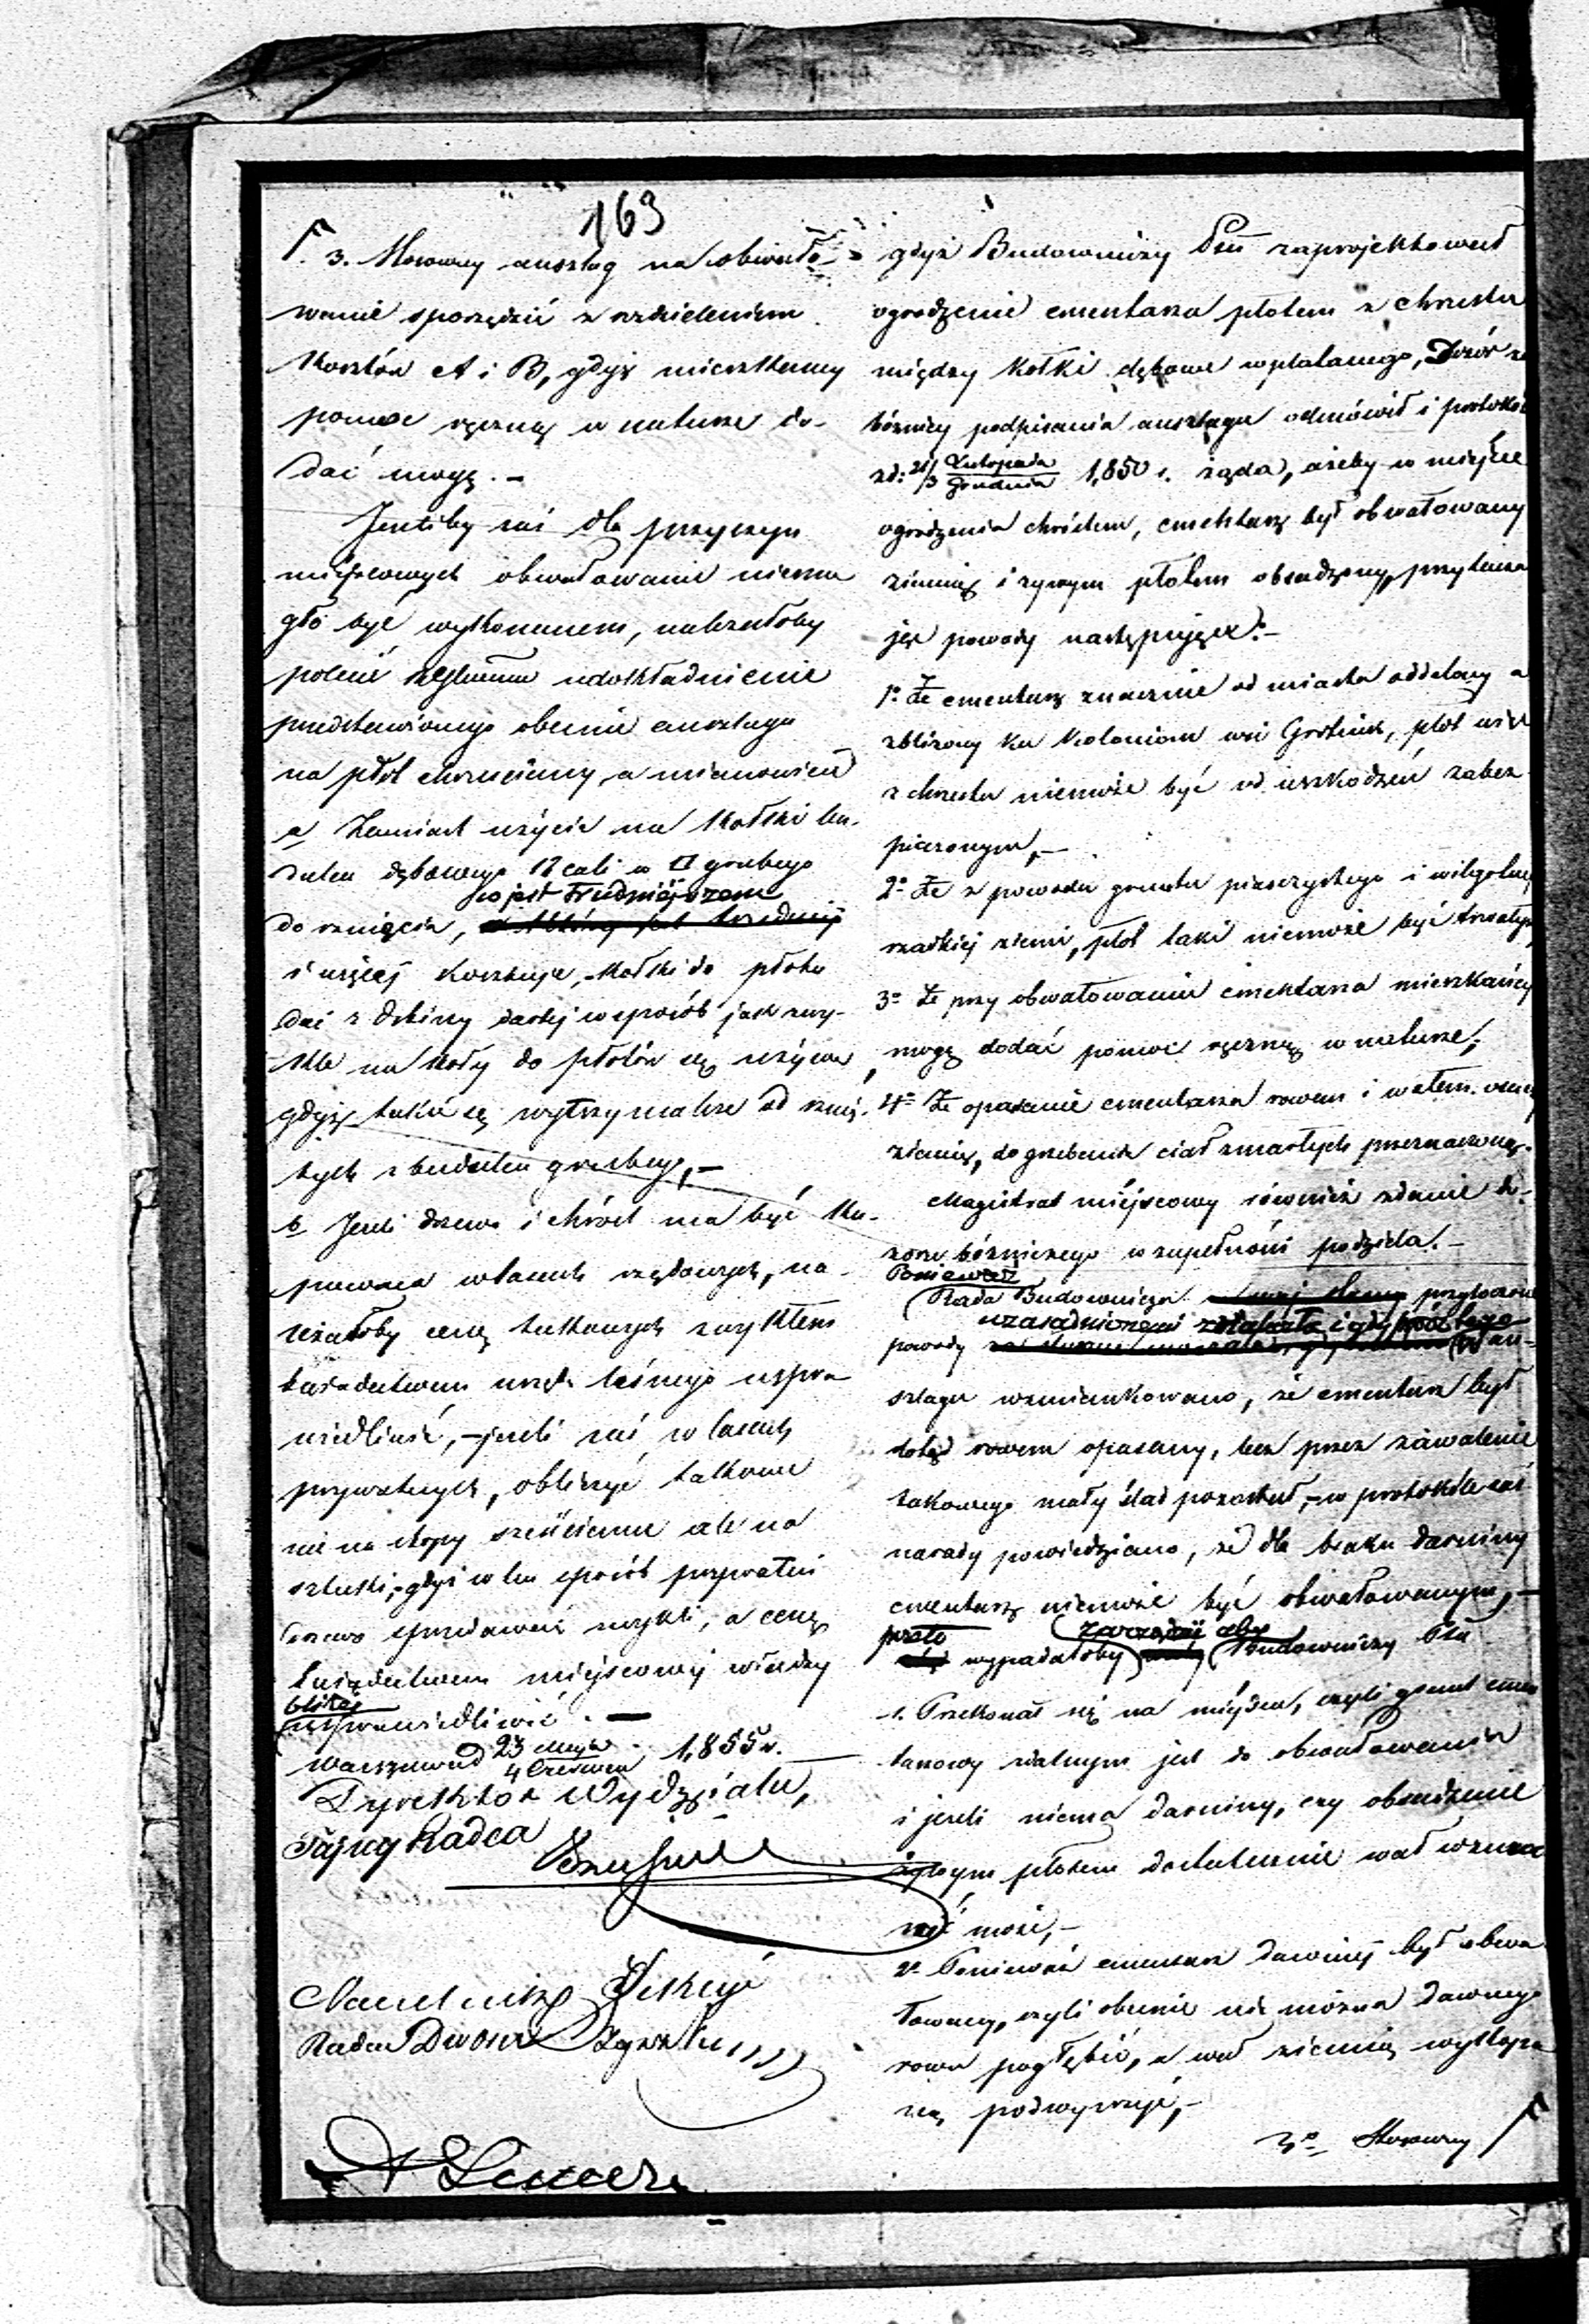 163
Γ. 3. Stosowny anszlag na obwało-
wanie sporządzić z rozdzieleniem
Kosztów A i B, gdyż mieszkańcy
pomoc ręczną w naturze do-
dać mogą. –
Jeżeliby zaś dla przyczyn
miejscowych obwałowanie niemo
gło być wykonanem, należałoby
polecić uskutecznienie
przedstawionego obecnie anszlagu
na płot chruściany, a mianowicie
a Zamiast użycia na Kołki bu-
dulcu dębowego 12 cali w □ grubego
co jest trudniejszem
do rznięcia,
i więcej kosztuje, Kołki do płotu
dać z dębiny w sposób jak zwy-
kle na koły do płotów się używa
gdyż takie są wytrzymalsze od rznię-
tych z budulcu grubego, –
b Jeżeli drzewo i chróst ma być ku-
powana w lasach rządowych, na-
leżałoby cenę takowych zwykłem
świadectwem urzędu leśnego uspra
wiedliwić, – jeżeli zaś w lasach
prywatnych, obliczyć takowe
nie na stopy sześcienne ale na
sztuki, gdyż w ten sposób prywatni
drzewo sprzedawać zwykli, a cenę
świadectwem miejscowej władzy
bliżej
usprawiedliwić. –
Warszawa d 23 Maja / 4 Czerwca 1,855 r.
Dyrektor Wydziału,
Tajny Radca
Naczelnik Sekcyi
Radca Dworu
gdyż Budowniczy Ptu zaprojektował
ogrodzenie cmentarza płotem z chrustu
między kołki dębowe wplatanego, Dozór
bóżniczy podpisania anszlagu odmówił i protokół
z d: 21/3 Listopada / Grudnia 1,850 r. żąda, ażeby w miejsce
ogrodzenia chróstem, cmentarz był obwałowany
ziemią i żywym płotem obsadzony, przytacza
jąc powody następujące: –
1º Że cmentarz znacznie od miasta oddalony a
zbliżony ku Koloniom wsi Grotniki, płot
z chrustu niemoże być od uszkodzeń zabez
pieczonym, –
2º Że z powodu gruntu piaszczystego i wilgotnej
rzadkiej ziemi, płot taki niemoże być trwałym,
3º Że przy obwałowaniu cmentarza mieszkańcy
mogą dodać pomoc ręczną w naturze,
4º Że opasanie cmentarza rowem i wałem
ziemię, do grzebania ciał zmarłych przeznaczoną.
Magistrat miejscowy również zdanie do-
zoru bóżniczego w zupełności podziela. –
Ponieważ
Rada Budownicza przytoczone
uzasadnionemi
powody w an-
szlagu wzmiankowano, że cmentarz był
dotąd rowem opasany, lecz przez zawalenie
takowego mały ślad pozostał, – w protokóle zaś
narady powiedziano, że dla braku darniny
cmentarz niemoże być obwałowanym, –
przeto zarządzić aby
wypadałoby Budowniczy Ptu
1. Przekonał się na miejscu, czyli grunt cmen
tarzowy zdatnym jest do obwałowania
i jeżeli niema darniny, czy obsadzenie
żywym płotem dostatecznie wał wzmoc
nić może, –
2º Ponieważ cmentarz dawniej był obwa
łowany, czyli obecnie nie można dawnego
rowu pogłębić, a wał ziemią wykopa
ną podwyższyć, –
3º Stosowny Γ